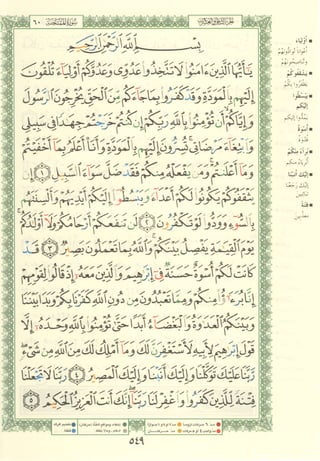 ٦٠
بِسْمِ اللَّهِ الرَّحْمَٰنِ الرَّحِيمِ
يَا أَيُّهَا الَّذِينَ آمَنُوا لَا تَتَّخِذُوا عَدُوِّي وَعَدُوَّكُمْ أَوْلِيَاءَ تُلْقُونَ
إِلَيْهِم بِالْمَوَدَّةِ وَقَدْ كَفَرُوا بِمَا جَاءَكُم مِّنَ الْحَقِّ يُخْرِجُونَ الرَّسُولَ
وَإِيَّاكُمْ أَن تُؤْمِنُوا بِاللَّهِ رَبِّكُمْ إِن كُنتُمْ خَرَجْتُمْ جِهَادًا فِي سَبِيلِي
وَابْتِغَاءَ مَرْضَاتِي تُسِرُّونَ إِلَيْهِم بِالْمَوَدَّةِ وَأَنَا أَعْلَمُ بِمَا أَخْفَيْتُمْ
وَمَا أَعْلَنتُمْ وَمَن يَفْعَلْهُ مِنكُمْ فَقَدْ ضَلَّ سَوَاءَ السَّبِيلِ ١ إِن
يَثْقَفُوكُمْ يَكُونُوا لَكُمْ أَعْدَاءً وَيَبْسُطُوا إِلَيْكُمْ أَيْدِيَهُمْ وَأَلْسِنَتَهُم
بِالسُّوءِ وَوَدُّوا لَوْ تَكْفُرُونَ ٢ لَن تَنفَعَكُمْ أَرْحَامُكُمْ وَلَا أَوْلَادُكُمْ
يَوْمَ الْقِيَامَةِ يَفْصِلُ بَيْنَكُمْ وَاللَّهُ بِمَا تَعْمَلُونَ بَصِيرٌ ٣ قَدْ
كَانَتْ لَكُمْ أُسْوَةٌ حَسَنَةٌ فِي إِبْرَاهِيمَ وَالَّذِينَ مَعَهُ إِذْ قَالُوا لِقَوْمِهِمْ
إِنَّا بُرَآءُ مِنكُمْ وَمِمَّا تَعْبُدُونَ مِن دُونِ اللَّهِ كَفَرْنَا بِكُمْ وَبَدَا بَيْنَنَا
وَبَيْنَكُمُ الْعَدَاوَةُ وَالْبَغْضَاءُ أَبَدًا حَتَّىٰ تُؤْمِنُوا بِاللَّهِ وَحْدَهُ إِلَّا
قَوْلَ إِبْرَاهِيمَ لِأَبِيهِ لَأَسْتَغْفِرَنَّ لَكَ وَمَا أَمْلِكُ لَكَ مِنَ اللَّهِ مِن شَيْءٍ
رَّبَّنَا عَلَيْكَ تَوَكَّلْنَا وَإِلَيْكَ أَنَبْنَا وَإِلَيْكَ الْمَصِيرُ ٤ رَبَّنَا لَا تَجْعَلْنَا
فِتْنَةً لِّلَّذِينَ كَفَرُوا وَاغْفِرْ لَنَا رَبَّنَا إِنَّكَ أَنتَ الْعَزِيزُ الْحَكِيمُ ٥
٥٤٩